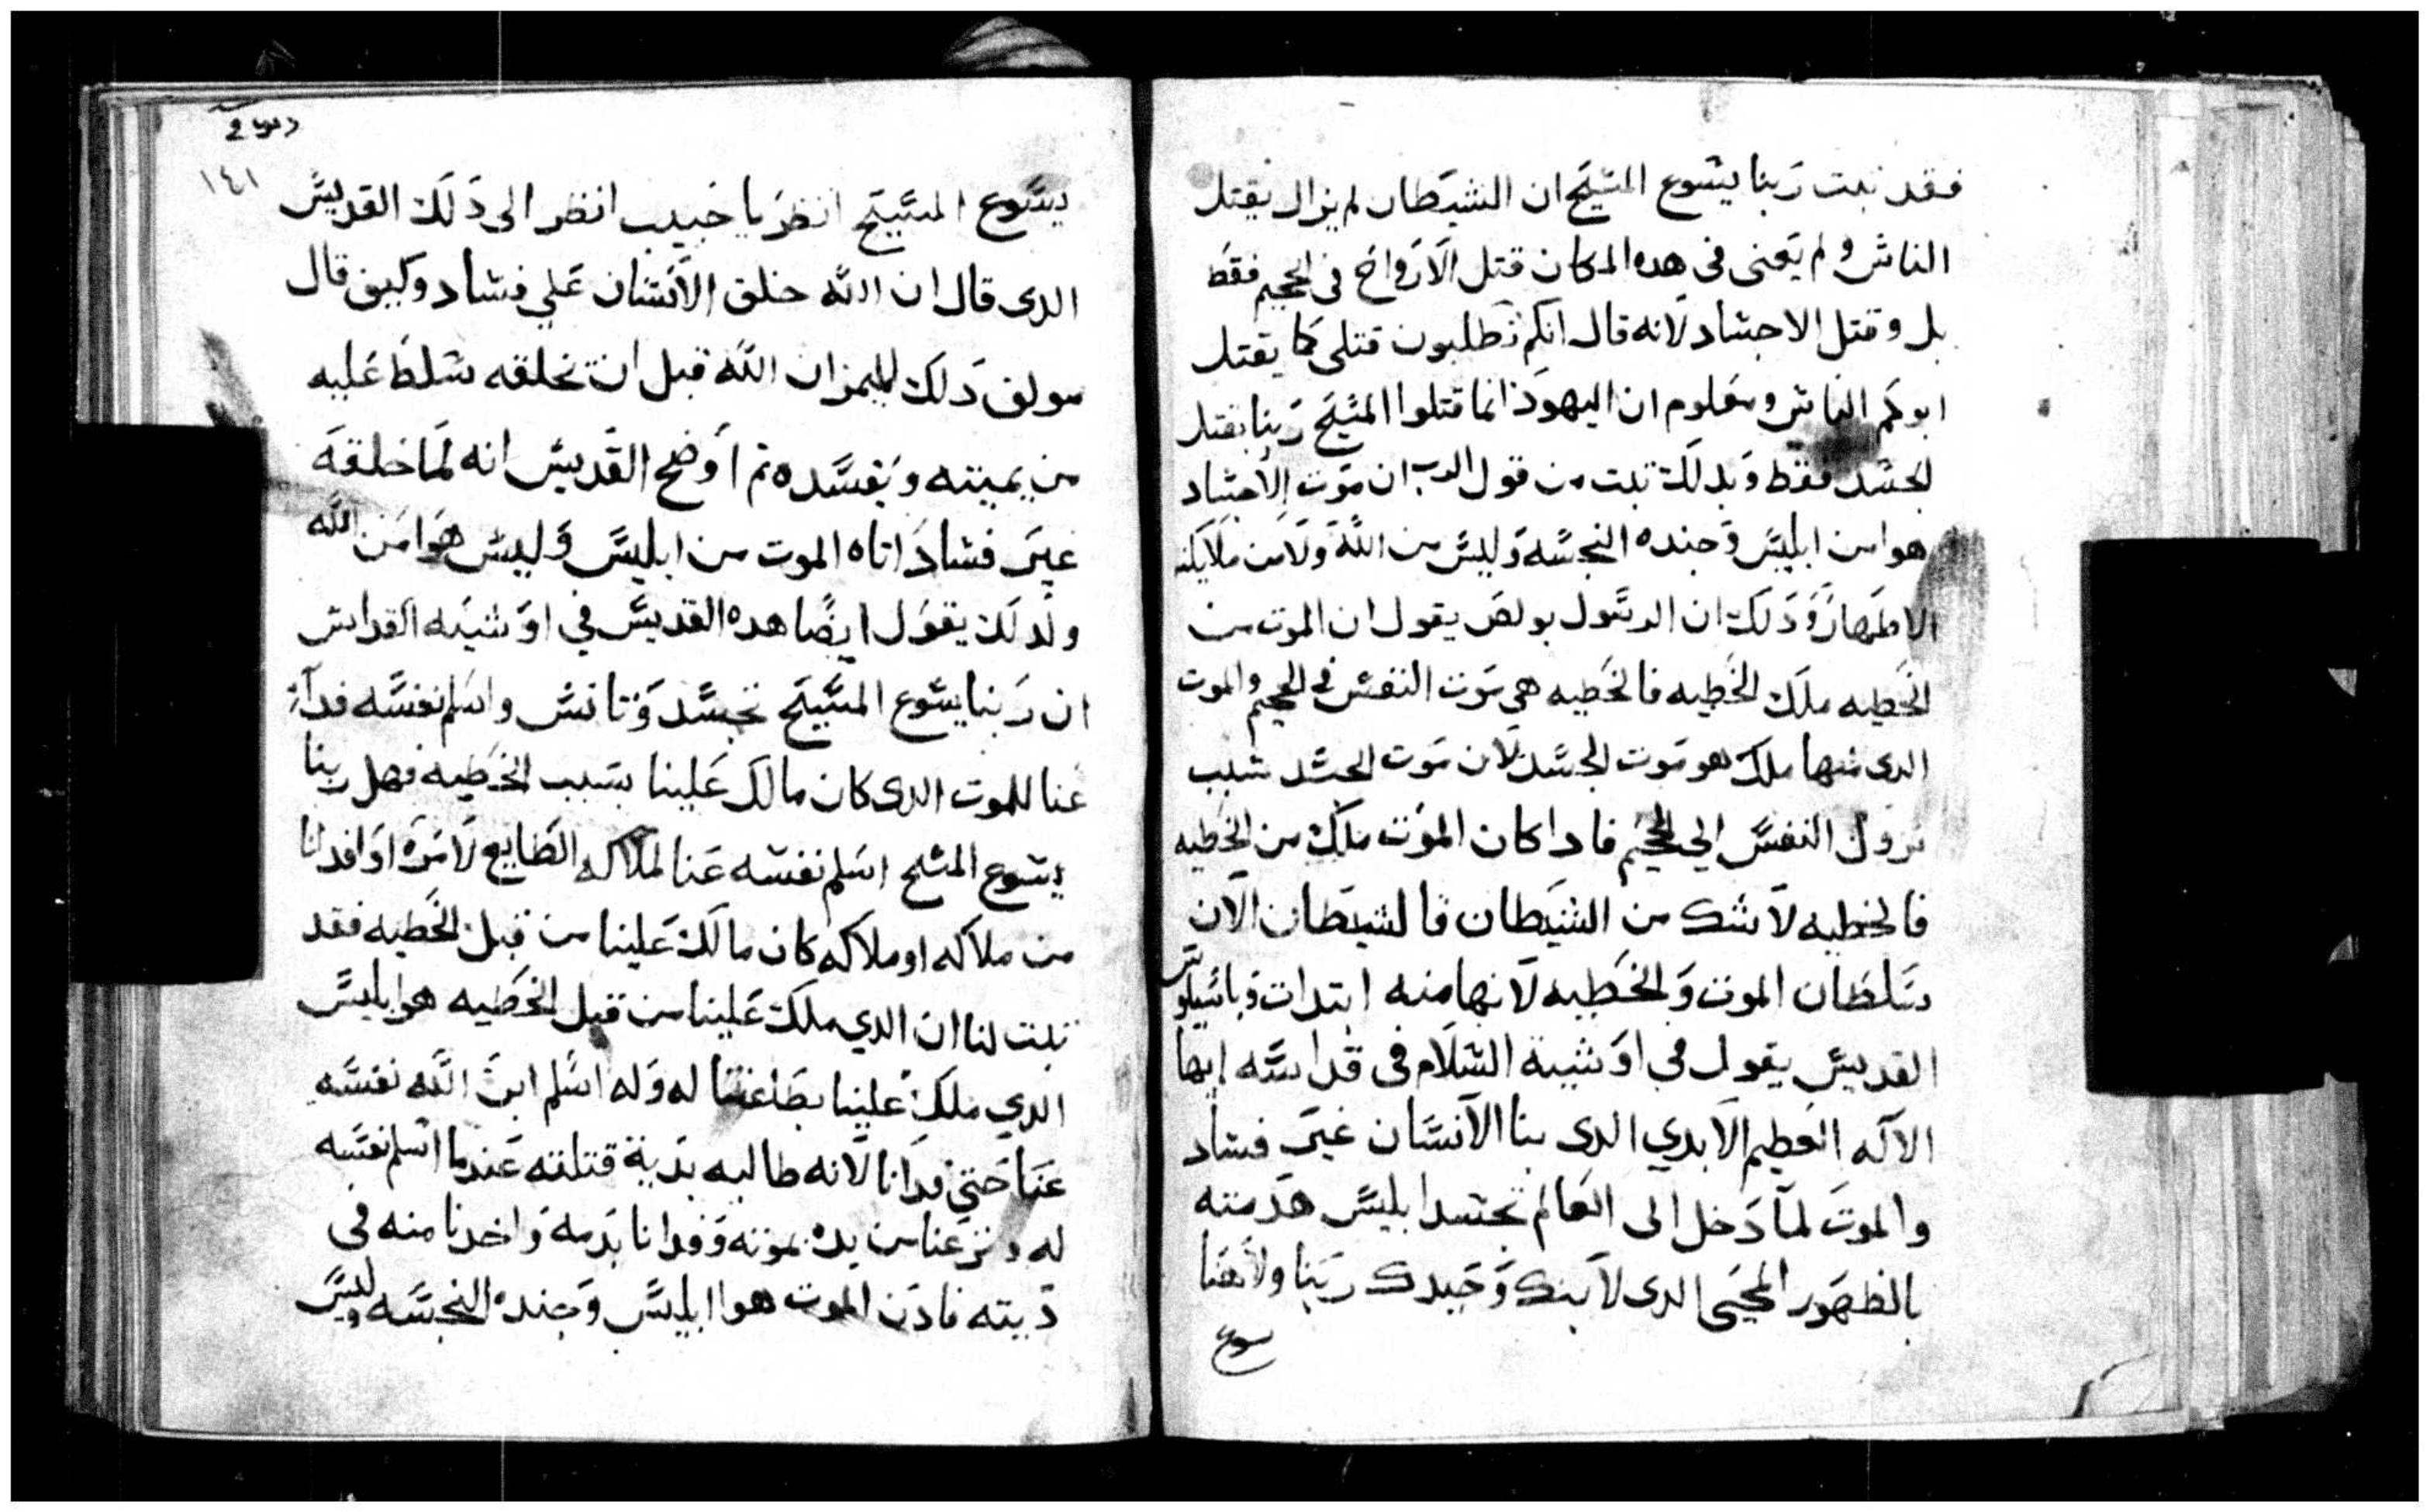 فقد تبت رَبنا يشوع المسَيَح ان الشيَطان لم يزال يقتل
الناسَ ولم يَعنى فى هده المكان قتل الاَرَواحَ فى الجحيم فقط
بل وقتل الاجشاد لاَنه قال انكم تطلبون قتلى كما يقتل
ابوكم الناس ومعَلوم ان اليهوَد انما قتلوا المسَيَح رَبنا بقتل
الجسَد فقط وَبدلَك تبت من قول الرب ان موَت الاجسَاد
هوا من ابليسَ وَجنده النجسَه وَليسَ من اللهَ وَلاَ من ملاَيكته
الاطهارَ وَدَلَك ان الرسَول بولصَ يقول ان الموت من
الخطيه ملَك الخَطيه فالخَطيه هى مَوت النفسَ فى الجحيم والموت
الدى منها ملَك هو مَوت الجسَد لاَن مَوت الجسَد سَبب
نزول النفسَ الي الجحيَم فادا كان الموَت ملَك من الخطيه
فالخطيه لاَ شك من الشيَطان فالشيَطان الاَن
سَلطان الموت وَالخَطيه لاَنها منه ابتدات وَباسَيليوسَ
القديسَ يقول في اوَشية السَلاَم فى قدَاسَه ايها
الاَله العَظيم الاَبدي الدى بنا الاَنسَان غيَر فسَاد
والموتَ لماَ دَخل الى العَالم بحسَد ابليسَ هَدمته
بالظهَور المحَيى الدى لاَبنك وَحَيدك ربَنا ولاَهنَا
سوع
١٤١
يسَوع المسَيَح انظرَ يا حَبيب انظر الى دَلَك القديسَ
الدى قال ان الله خلق الاَنسَان عَلي فسَاد وكيف قال
مولف دَلَك الميمر ان اللهَ قبل ان يخلقه سَلطَ عَليه
من يميته وَيفسَده تم اَوَضح القَديسَ انه لَما خلقهَ
غيَر فسَاد اتاه الموت من ابليسَ وَليسَ هَوَا منَ اللهَ
ولَدلَك يقوَل ايضَا هده القديسَ في اوَشيَه القداسَ
ان رَبنا يسَوع المسَيَح تجسَد وَتانسَ واسَلم نفسَه فداَء
عَنا للموت الدى كان مالَك عَلينا بسَبب الخَطيه فهل ربنا
يسَوع المسَيح اسَلم نفسَه عَنا لملاكه الطَايع لاَمرَه اوَ افدانا
من ملاكه او ملاكه كان مالَك عَلينا من قبل الخَطيه فقد
تبت لنا ان الدي ملَك عَلينا من قبل الخَطيه هوا ابليسَ
الدي ملَك عَلينا بطَاعَتنا له وَله اسَلم ابنَ اللهَ نفسَه
عَنا حَتى فدَانا لاَنه طالبه بدَية قتلته عَندما اسَلم نفسَه
له ونزعَنا من يده بموته وَفدانا بدَمه وَاخدنا منه فى
دَيته فادَن الموت هوا ابليسَ وَجنده النجسَه وليسَ